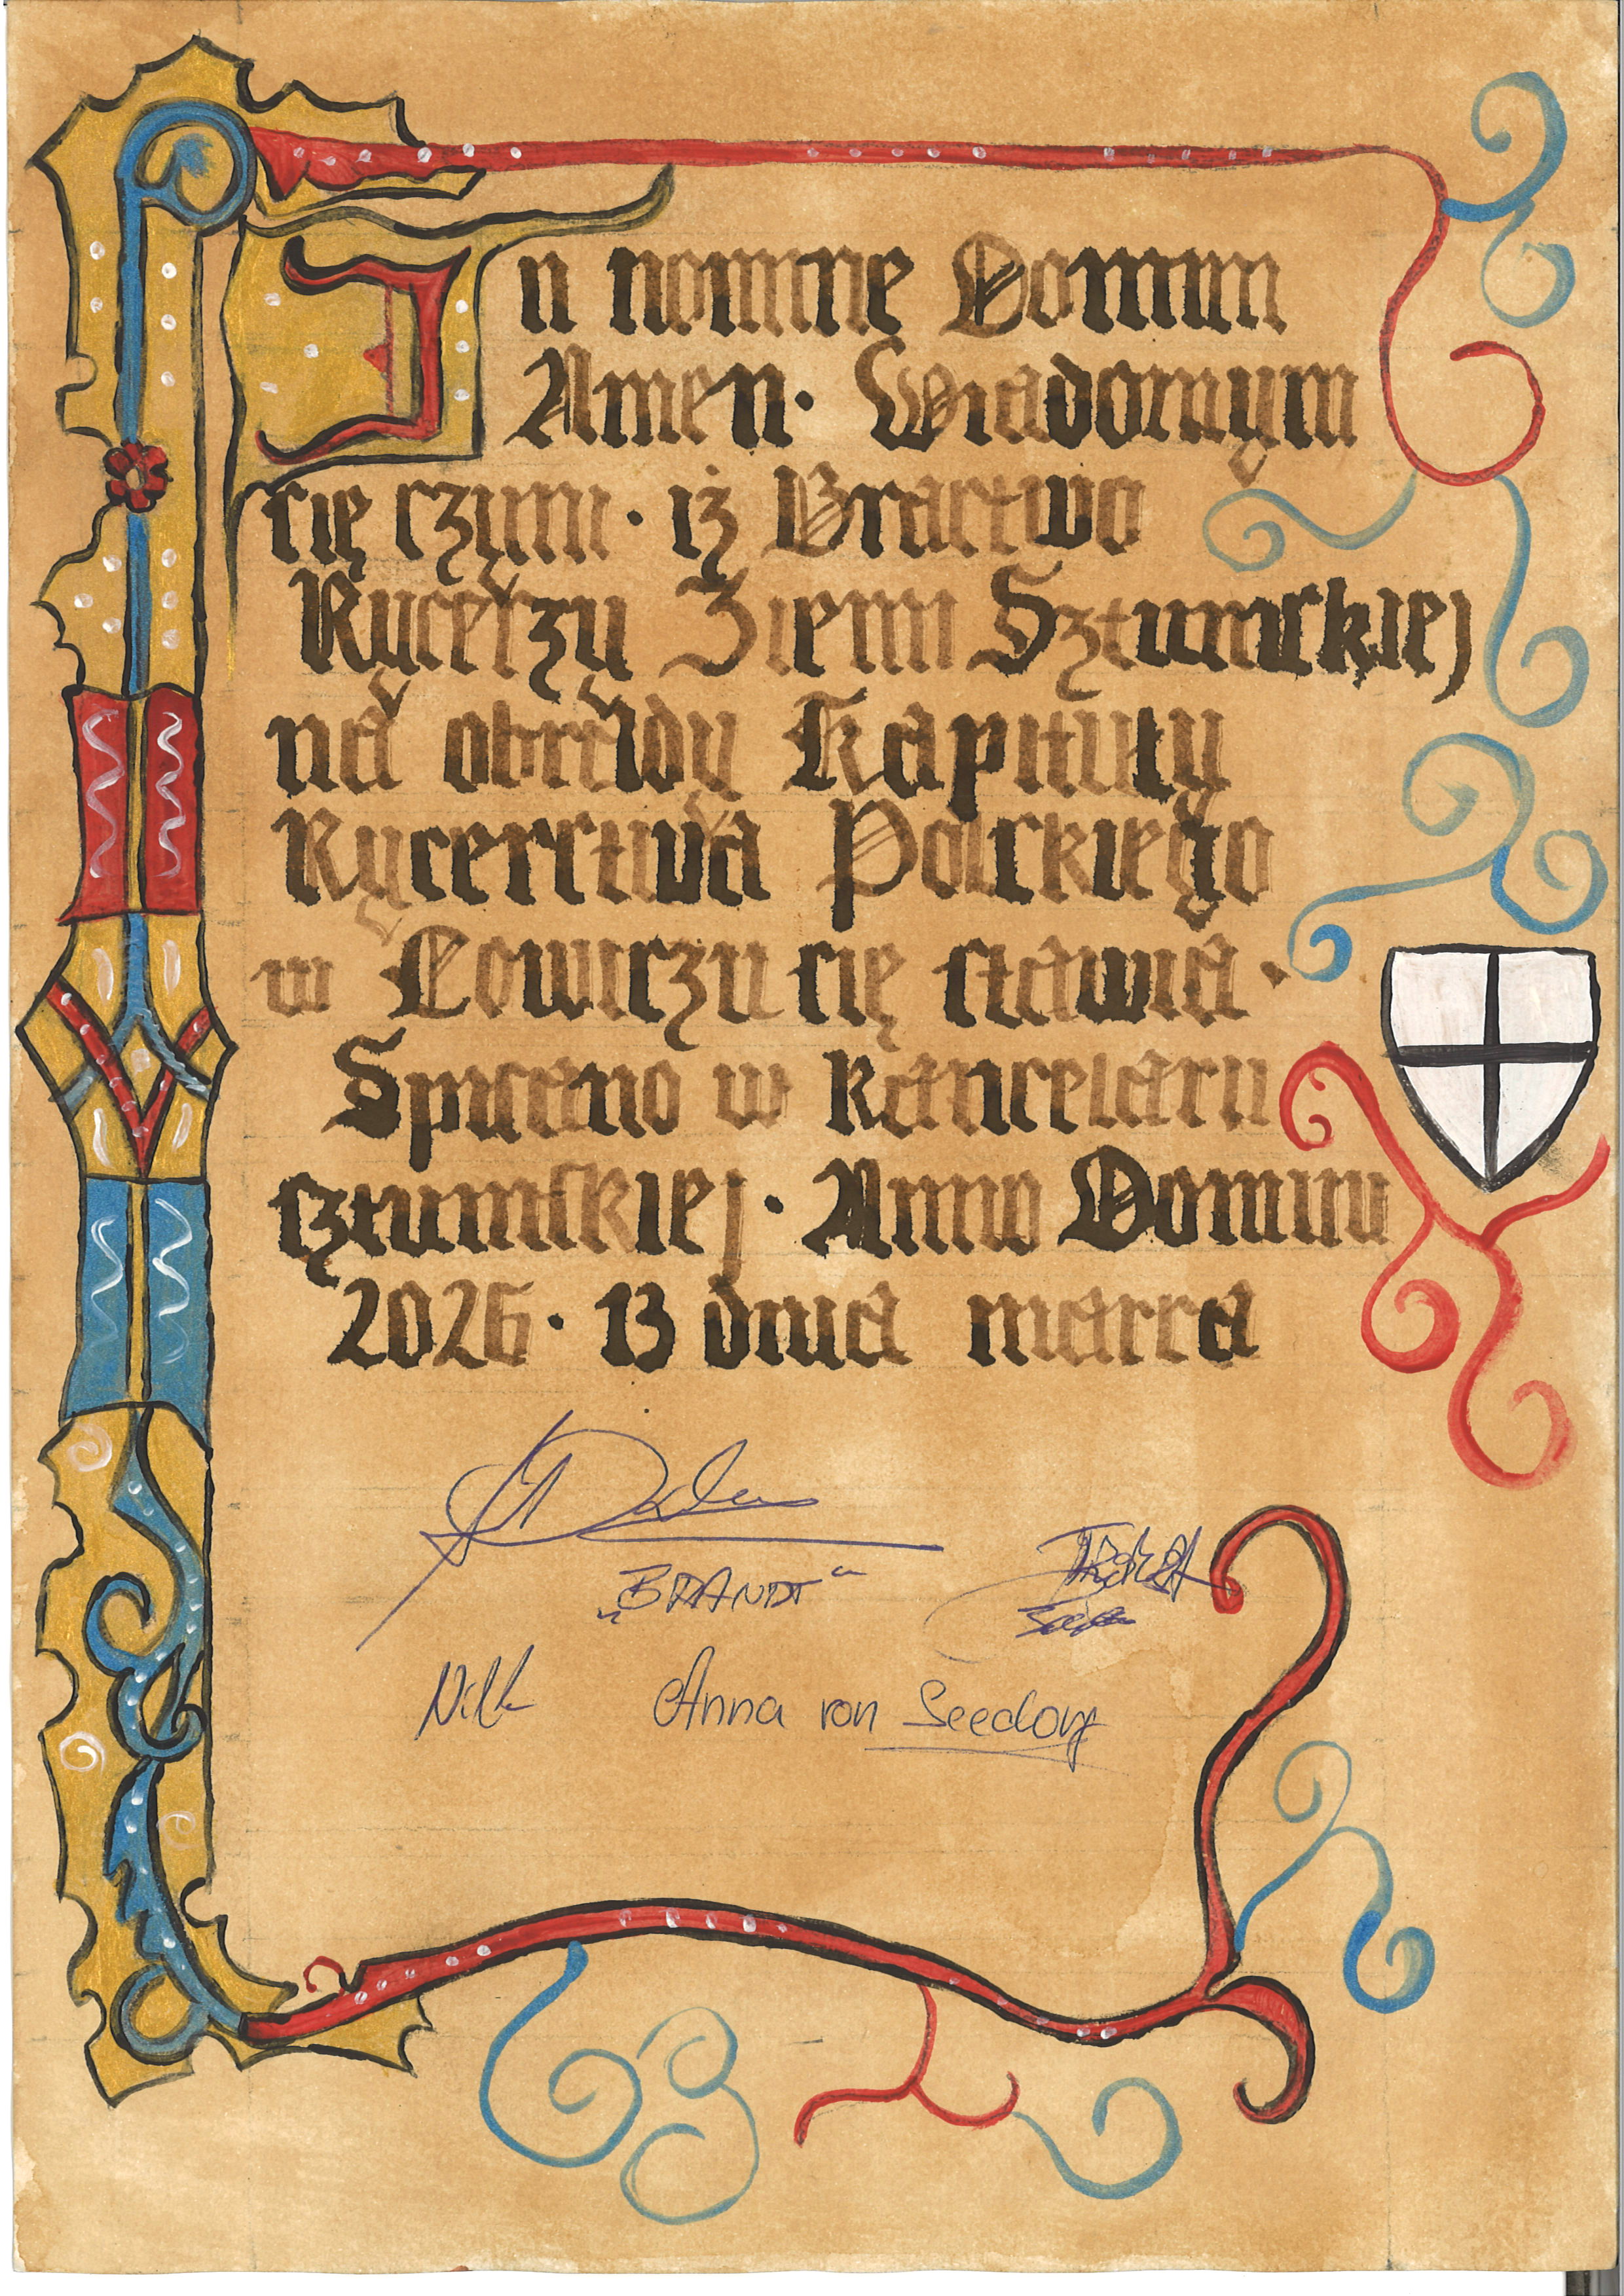 In nomine Domini
Amen · Wiadomym
się czyni · iż Bractwo
Rycerzy Ziemi Sztumskiej
na obrady Kapituły
Rycerstwa Polskiego
w Łowiczu się stawia ·
Spisano w kancelarii
sztumskiej · Anno Domini
2026 · 13 dnia marca
„BRANDT"
Anna von Seedorf